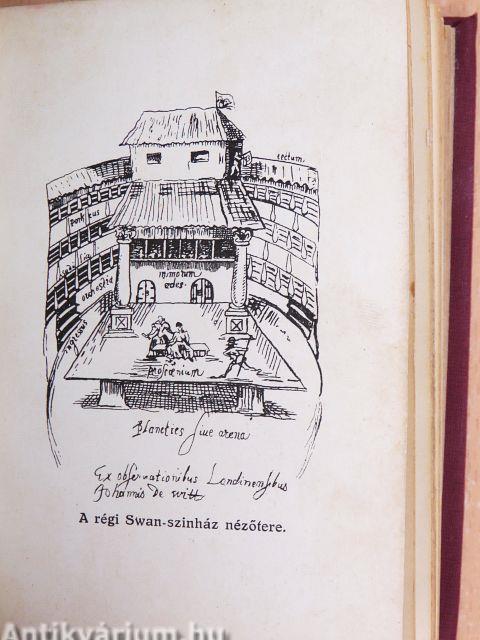 tectum
porticus
orchestra
ingressus
mimorum
ædes.
proscænium
Planeties siue arena
Ex observationibus Londinensibus
Johannis De Witt
A régi Swan-szinház nézőtere.
Antikvárium.hu